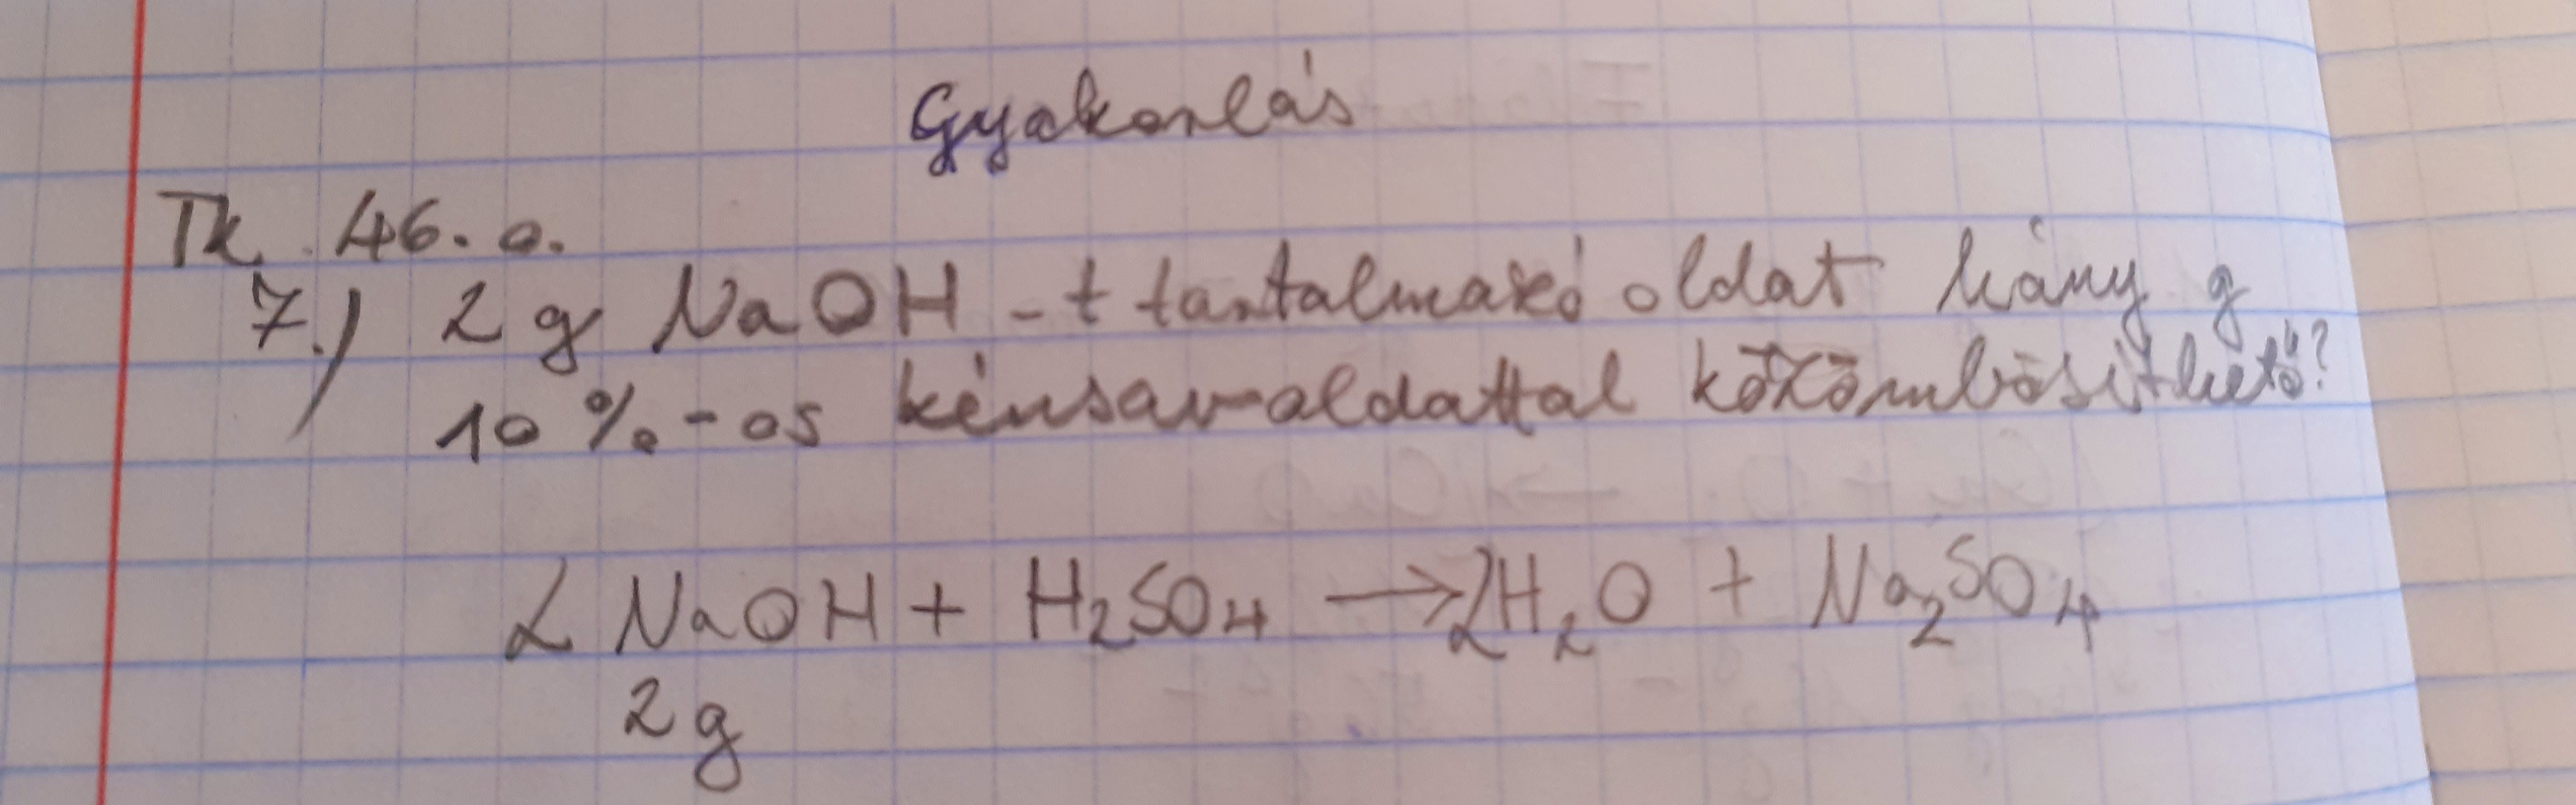 Gyakorlás
Tk. 46. o.
7.) 2 g NaOH-t tartalmazó oldat hány g
10%-os kénsavoldattal közömbösíthető?
2 NaOH + H₂SO₄ → 2H₂O + Na₂SO₄
2g